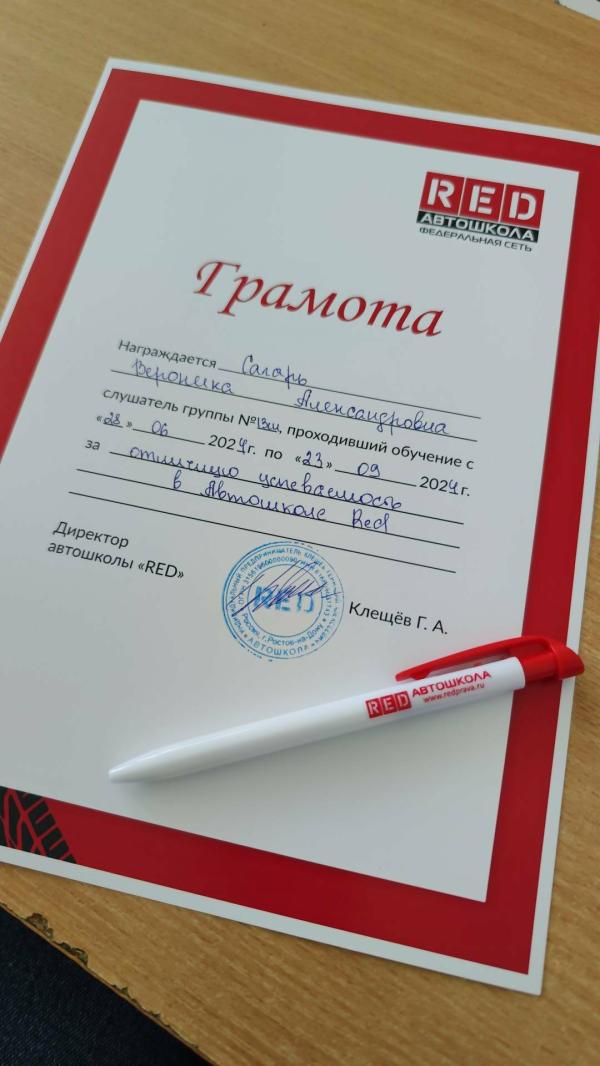 RED
АВТОШКОЛА
ФЕДЕРАЛЬНАЯ СЕТЬ
Грамота
Награждается Саларь
Вероника Александровна
слушатель группы №13ш, проходивший обучение с
«28» 06 2024г. по «23» 09 2024г.
за отличную успеваемость
в Автошколе Red
Директор
автошколы «RED»
RED
г. Ростов-на-Дону
АВТОШКОЛА
Клещёв Г. А.
RED АВТОШКОЛА
www.redprava.ru